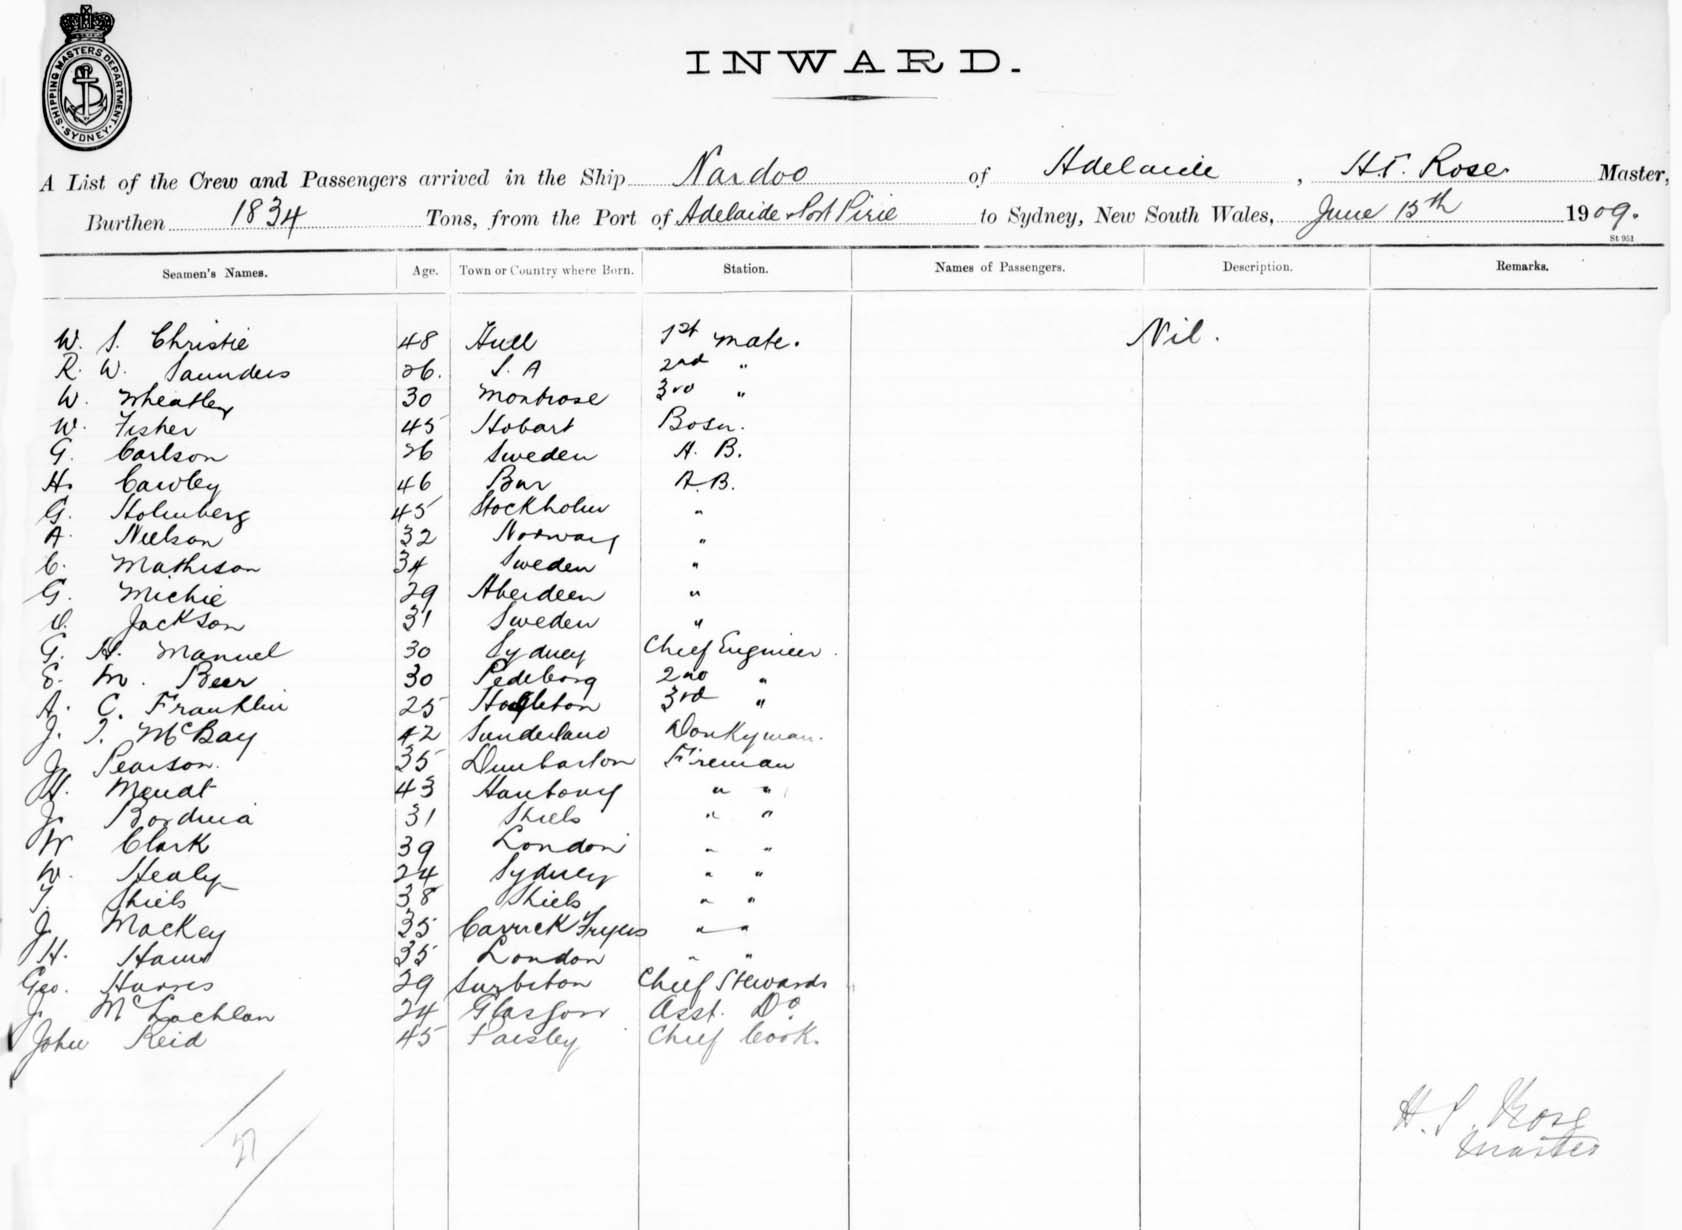 SHIPPING MASTERS DEPARTMENT. SYDNEY.
INWARD.
A List of the Crew and Passengers arrived in the Ship Nardoo of Adelaide, H.T. Rose Master,
Burthen 1834 Tons, from the Port of Adelaide & Port Pirie to Sydney, New South Wales, June 15th 1909.
St 951
Seamen's Names. Age. Town or Country where Born. Station. Names of Passengers. Description. Remarks.
W. S. Christie 48 Hull 1st Mate. Nil.
R. W. Saunders 26. S. A 2nd "
W. Wheatley 30 Montrose 3rd "
W. Fisher 45 Hobart Bosn.
G. Carlson 26 Sweden A. B.
H. Cawley 46 A.B.
G. Holmberg 45 Stockholm "
A. Nielson 32 Norway "
C. Mathison 34 Sweden "
G. Michie 29 Aberdeen "
Jackson 31 Sweden "
G. H. Manuel 30 Sydney Chief Engineer.
E. M. Beer 30 2nd "
A. C. Franklin 25 3rd "
J. T. McBay 42 Sunderland Donkyman.
J. Pearson. 35 Dumbarton Fireman
H. 43 " "
J. 31 Shiels " "
W Clark 39 London " "
W. Healy 24 Sydney " "
T. Shiels 38 Shiels " "
J. Mackey 35 Carrick " "
H. 35 London " "
Geo. Harris 29 Surbiton Chief Stewards
J. McLachlan 24 Glasgow Asst. Do
John Reid 45 Paisley Chief Cook.
H. T. Rose
Master